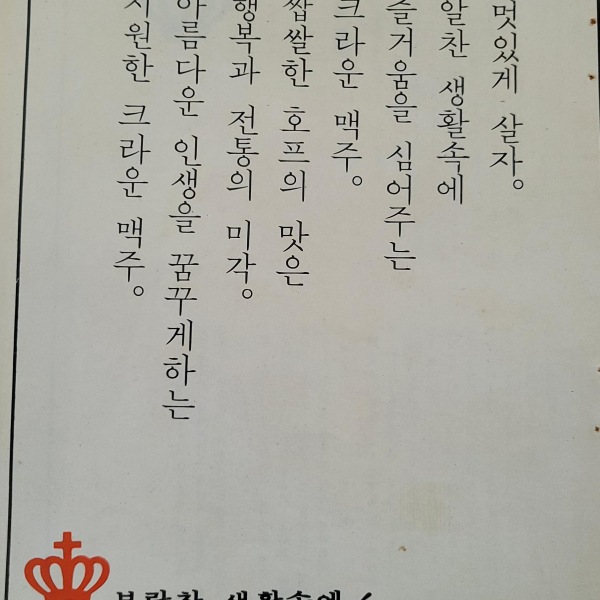 멋있게 살자。
알찬 생활속에
즐거움을 심어주는
크라운 맥주。
쌉쌀한 호프의 맛은
행복과 전통의 미각。
아름다운 인생을 꿈꾸게하는
시원한 크라운 맥주。
보람찬 생활속에